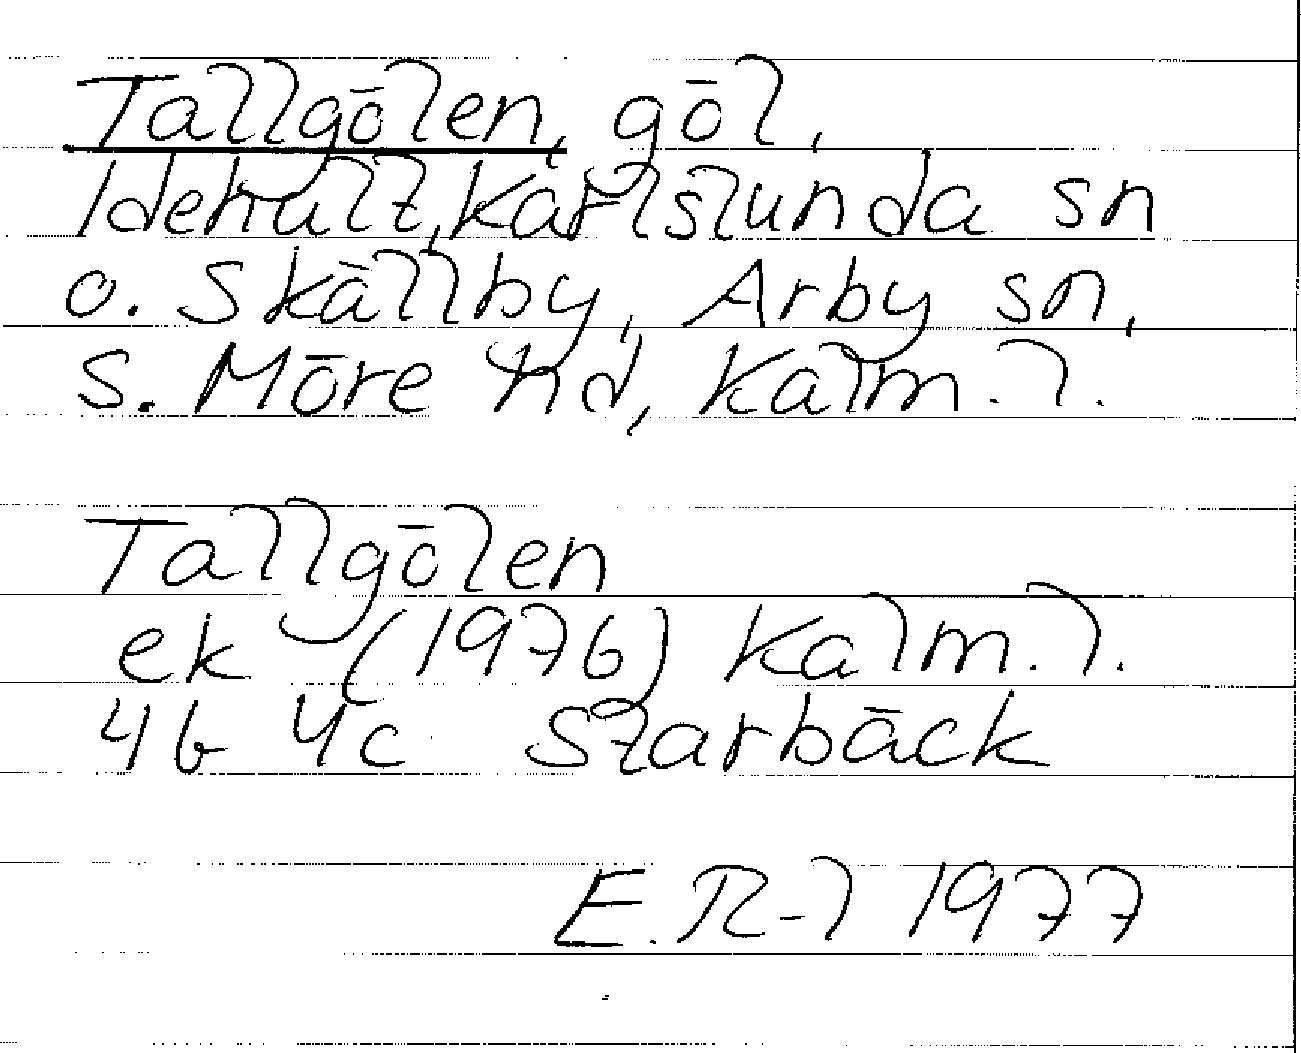 Tallgölen, göl,
Idehult, Karlslunda sn
o. Skällby, Arby sn,
S. Möre hd, Kalm. l.
Tallgölen
ek (1976) Kalm. l.
4b 4c Starbäck
E. R-l 1977